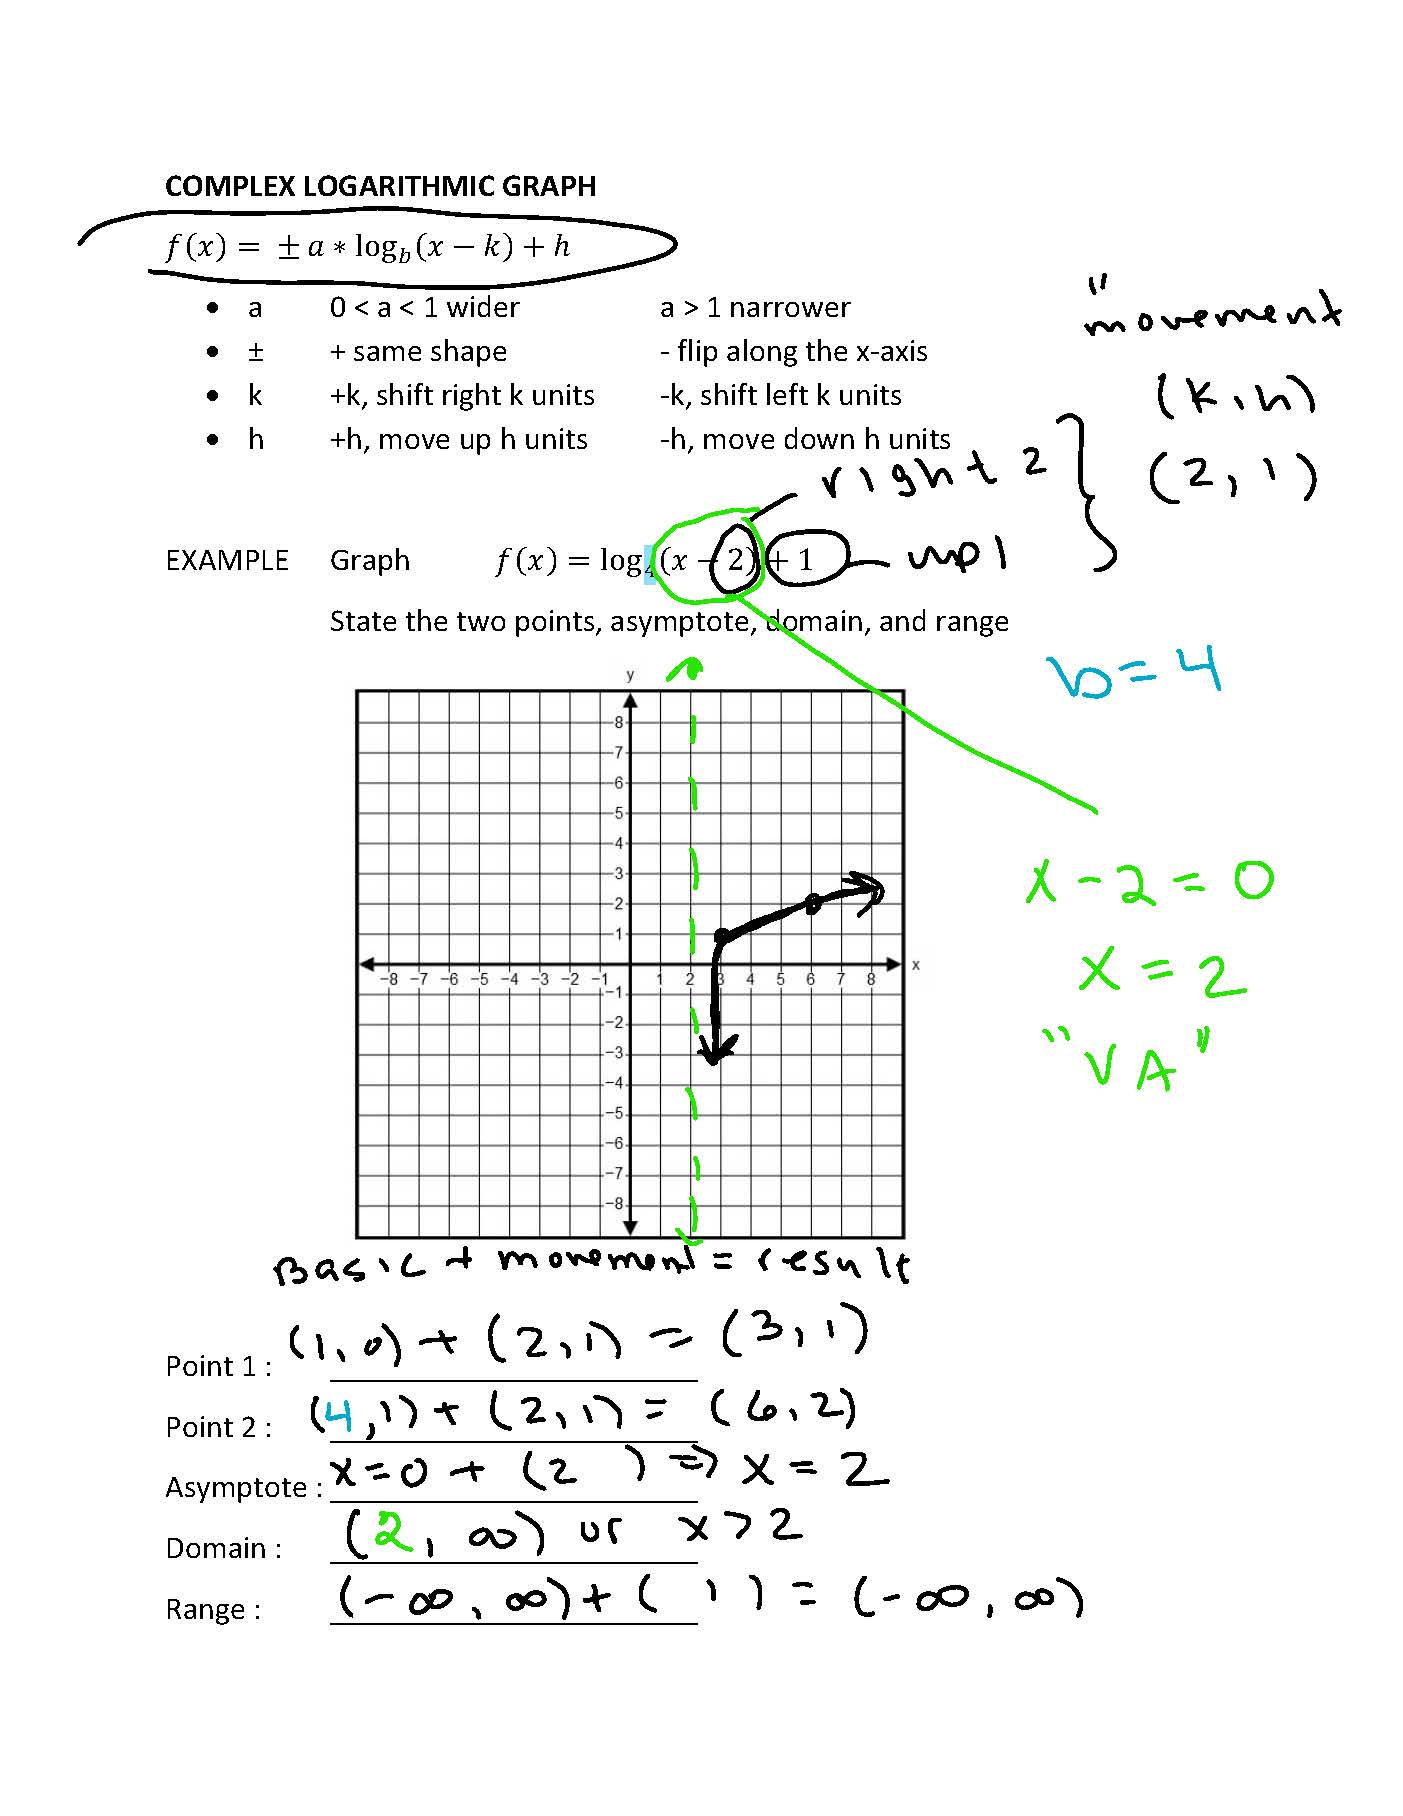 COMPLEX LOGARITHMIC GRAPH
f(x) = ± a * log_b(x − k) + h
• a 0 < a < 1 wider a > 1 narrower
"movement
• ± + same shape - flip along the x-axis
• k +k, shift right k units -k, shift left k units
(k, h)
• h +h, move up h units -h, move down h units
right 2
(2, 1)
EXAMPLE Graph f(x) = log₄(x − 2) + 1
up 1
State the two points, asymptote, domain, and range
b = 4
y
8
7
6
5
4
3
2
1
−8 −7 −6 −5 −4 −3 −2 −1 1 2 3 4 5 6 7 8 x
−1
−2
−3
−4
−5
−6
−7
−8
x - 2 = 0
x = 2
"VA"
Basic + movement = result
Point 1 : (1, 0) + (2, 1) = (3, 1)
Point 2 : (4, 1) + (2, 1) = (6, 2)
Asymptote : x = 0 + (2 ) => x = 2
Domain : (2, ∞) or x > 2
Range : (-∞, ∞) + ( 1) = (-∞, ∞)